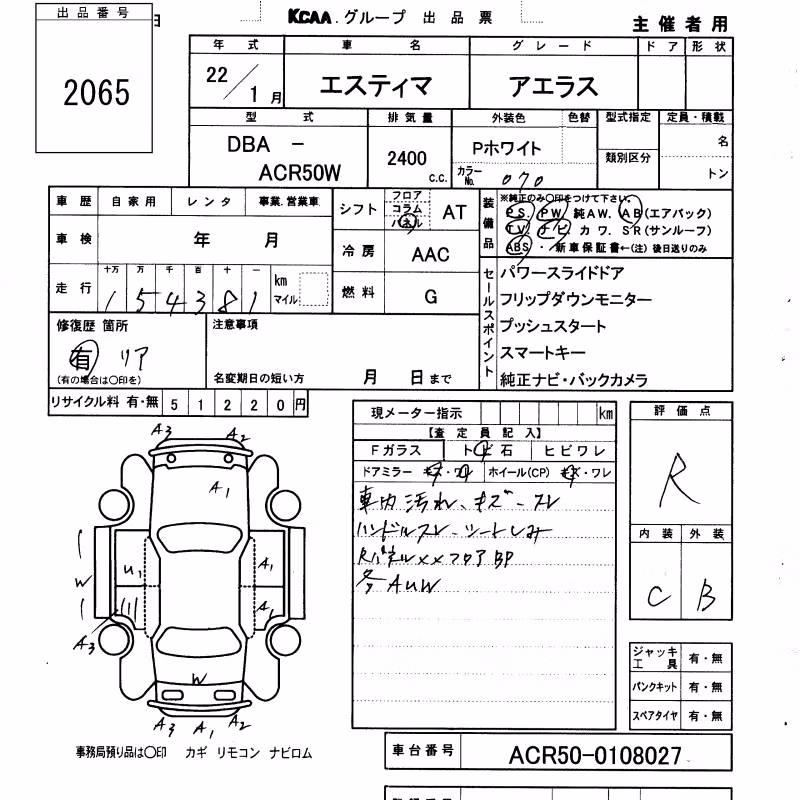 出品番号
2065
KCAA.グループ 出品票
主催者用
年式 車名 グレード ドア 形状
22/1月 エスティマ アエラス
型式 排気量 外装色 色替 型式指定 定員・積載
DBA - ACR50W 2400 c.c. Pホワイト 類別区分 名
カラーNo. 070 トン
車歴 自家用 レンタ 事業.営業車
車検 年 月
走行 十万 万 千 百 十 一
154381 km マイル
シフト フロア コラム パネル AT
冷房 AAC
燃料 G
装備品 ※純正のみ○印をつけて下さい。
PS. PW. 純AW. AB(エアバック)
TV. ナビ カワ. SR(サンルーフ)
ABS・新車保証書←(注)後日送りのみ
セールスポイント
パワースライドドア
フリップダウンモニター
プッシュスタート
スマートキー
純正ナビ・バックカメラ
修復歴 箇所
有 リア
(有の場合は○印を)
注意事項
名変期日の短い方 月 日まで
リサイクル料 有・無 51220円
現メーター指示 km
【査定員記入】
Fガラス トビ石 ヒビワレ
ドアミラー キズ・ワレ ホイール(CP) キズ・ワレ
車内汚れ、キズ-スレ
ハンドルスレ-シートしみ
Rパネル××フロアBP
各AUW
評価点
R
内装 外装
C B
ジャッキ工具 有・無
パンクキット 有・無
スペアタイヤ 有・無
A3 A2
A1
W U1 A1
A1
A3
W
A3 A1 A2
事務局預り品は○印 カギ リモコン ナビロム
車台番号 ACR50-0108027